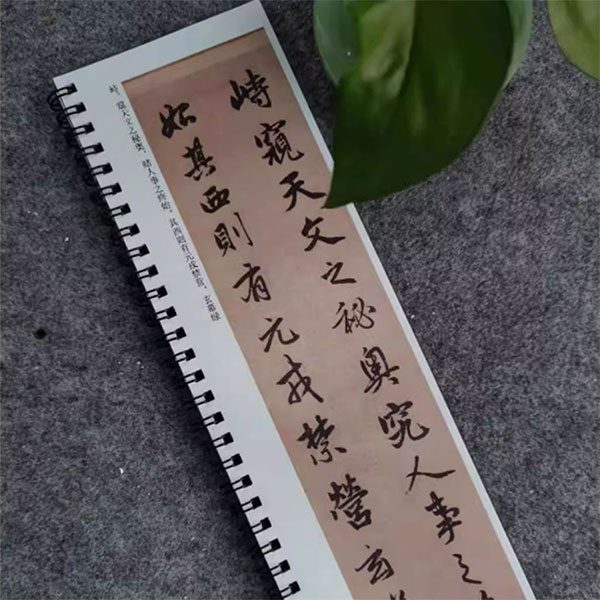 峙窺天文之祕奥究人事之
始其西則有元戎禁營玄
峙。窥天文之秘奥，究人事之终始。其西则有元戎禁营，玄幕绿